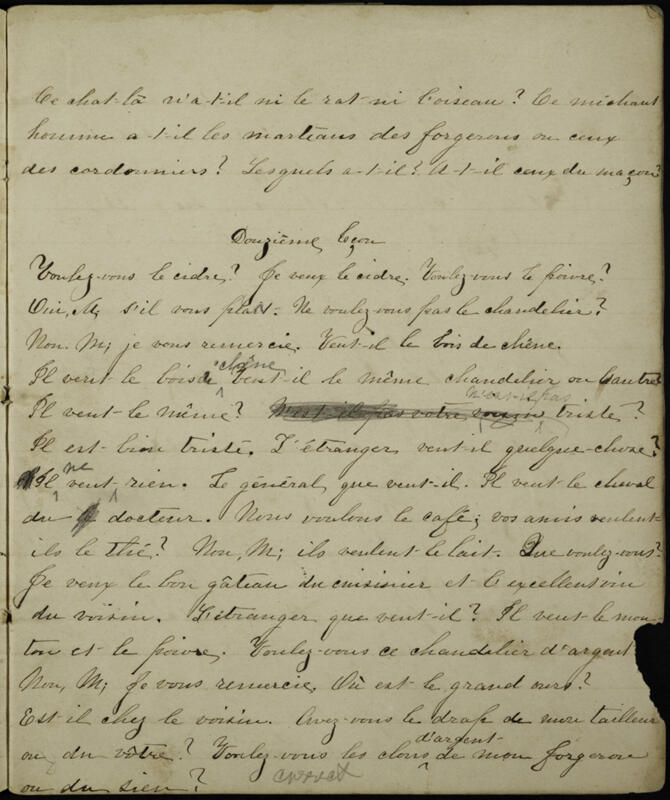 Ce chat-là n'a-t-il ni le rat ni l'oiseau? Ce méchant
homme a-t-il les marteaus des forgerons ou ceux
des cordonniers? Lesquels a-t-il? A-t-il ceux du maçon?
Douzième leçon
Voulez-vous le cidre? Je veux le cidre. Voulez-vous le poivre?
Oui, M; s'il vous plait. Ne voulez-vous pas le chandelier?
Non. M; je vous remercie. Veut-il le bois de chêne.
Il veut le bois de chêne veut-il le même chandelier ou l'autre
n'est-il pas
Il veut-le même? N'est il pas votre voisin triste?
Il est bien triste. L'étranger veut-il quelque-chose?
Il ne veut rien. Le général que veut-il. Il veut le cheval
du docteur. Nous voulons le café; vos amis veulent-
ils le thé? Non, M; ils veulent le lait. Que voulez-vous?
Je veux le bon gâteau du cuisinier et l'excellent vin
du voisin. L'étranger que veut-il? Il veut le mou-
ton et le poivre. Voulez-vous ce chandelier d'argent
Non, M; Je vous remercie. Où est le grand ours?
Est-il chez le voisin. Avez-vous le drap de mon tailleur
ou du vôtre? Voulez-vous les clous d'argent de mon forgeron
ou du sien? correct